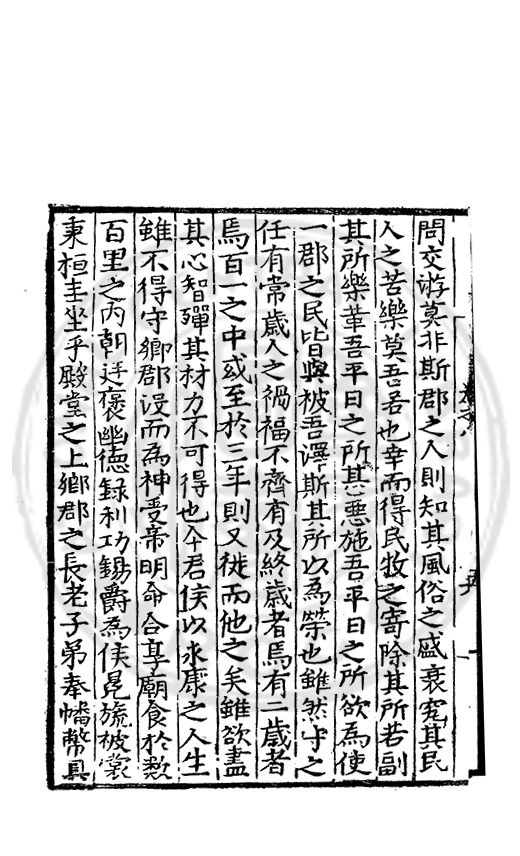 閭交游莫非斯郡之人則知其風俗之盛衰究其民
人之苦樂莫吾若也幸而得民牧之寄除其所苦副
其所樂華吾平日之所甚惡施吾平日之所欲為使
一郡之民皆與被吾澤斯其所以為榮也雖然守之
任有常歲人之禍福不齊有及終歲者焉有二歲者
焉百一之中或至於三年則又徙而他之矣雖欲盡
其心智殫其材力不可得也今君侯以永康之人生
雖不得守鄉郡沒而為神受帝明命合享廟食於數
百里之內朝廷褒幽德録利功錫爵為侯冕旒被衮
秉桓圭坐乎殿堂之上鄉郡之長老子弟奉幡幣具